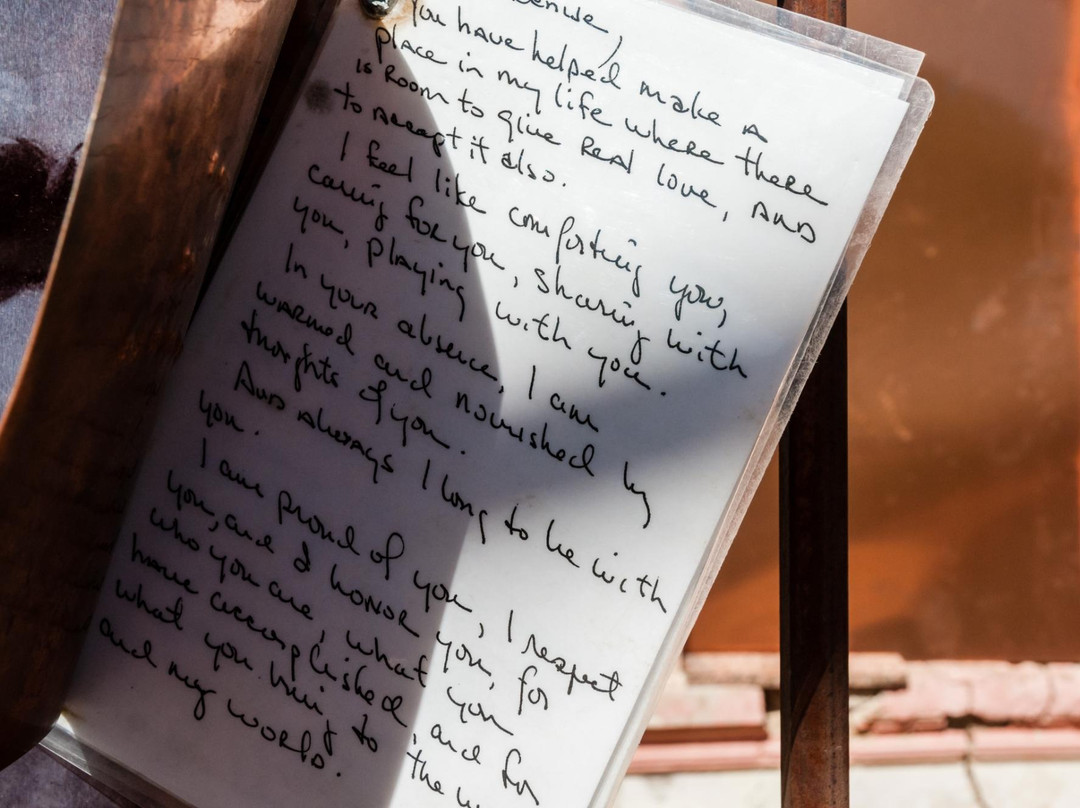 you have helped make a
place in my life where there
is room to give real love, and
to accept it also.
I feel like comforting you,
caring for you, sharing with
you, playing with you.
In your absence, I am
warmed and nourished by
thoughts of you.
And always I long to be with
you.
I am proud of you, I respect
you, and I honor you, for
who you are, what you
have accomplished, and for
what you bring to the
and my world.